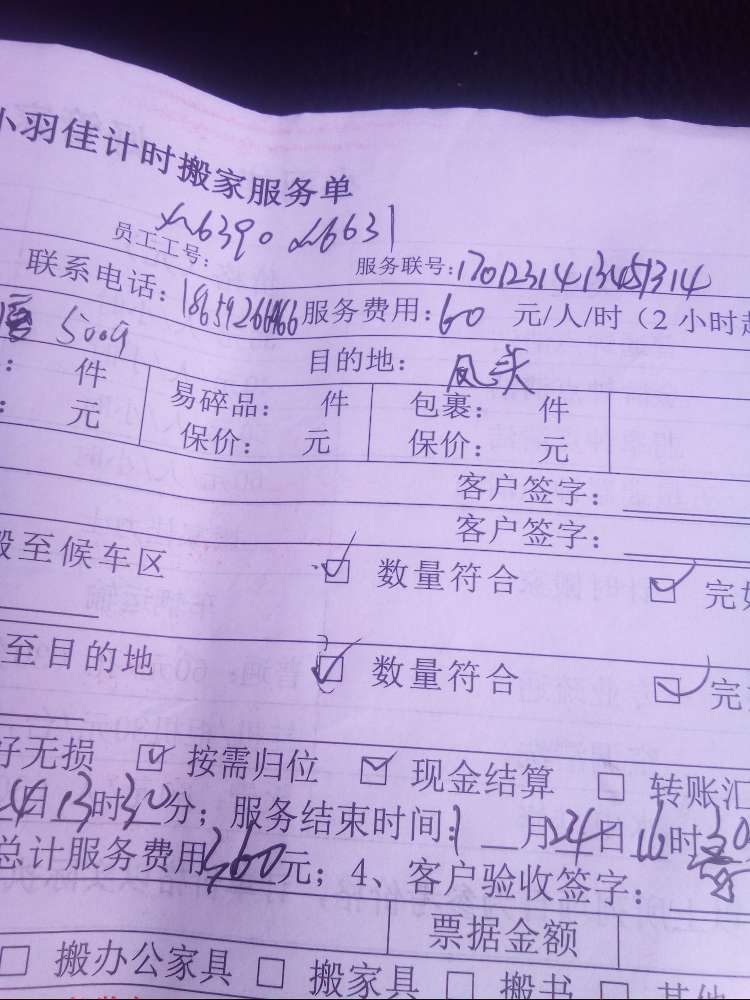 小羽佳计时搬家服务单
员工工号: 
服务联号:
联系电话: 服务费用: 60 元/人/时（2 小时起
5009 目的地:
: 件 易碎品: 件 包裹: 件
: 元 保价: 元 保价: 元
客户签字:
客户签字:
搬至候车区 ☑ 数量符合 ☑ 完好
至目的地 ☑ 数量符合 ☑ 完好
好无损 ☑ 按需归位 ☑ 现金结算 □ 转账汇
24日13时30分; 服务结束时间: 1月24日16时30
总计服务费用360元; 4、客户验收签字:
票据金额
□ 搬办公家具 □ 搬家具 □ 搬书 □ 其他